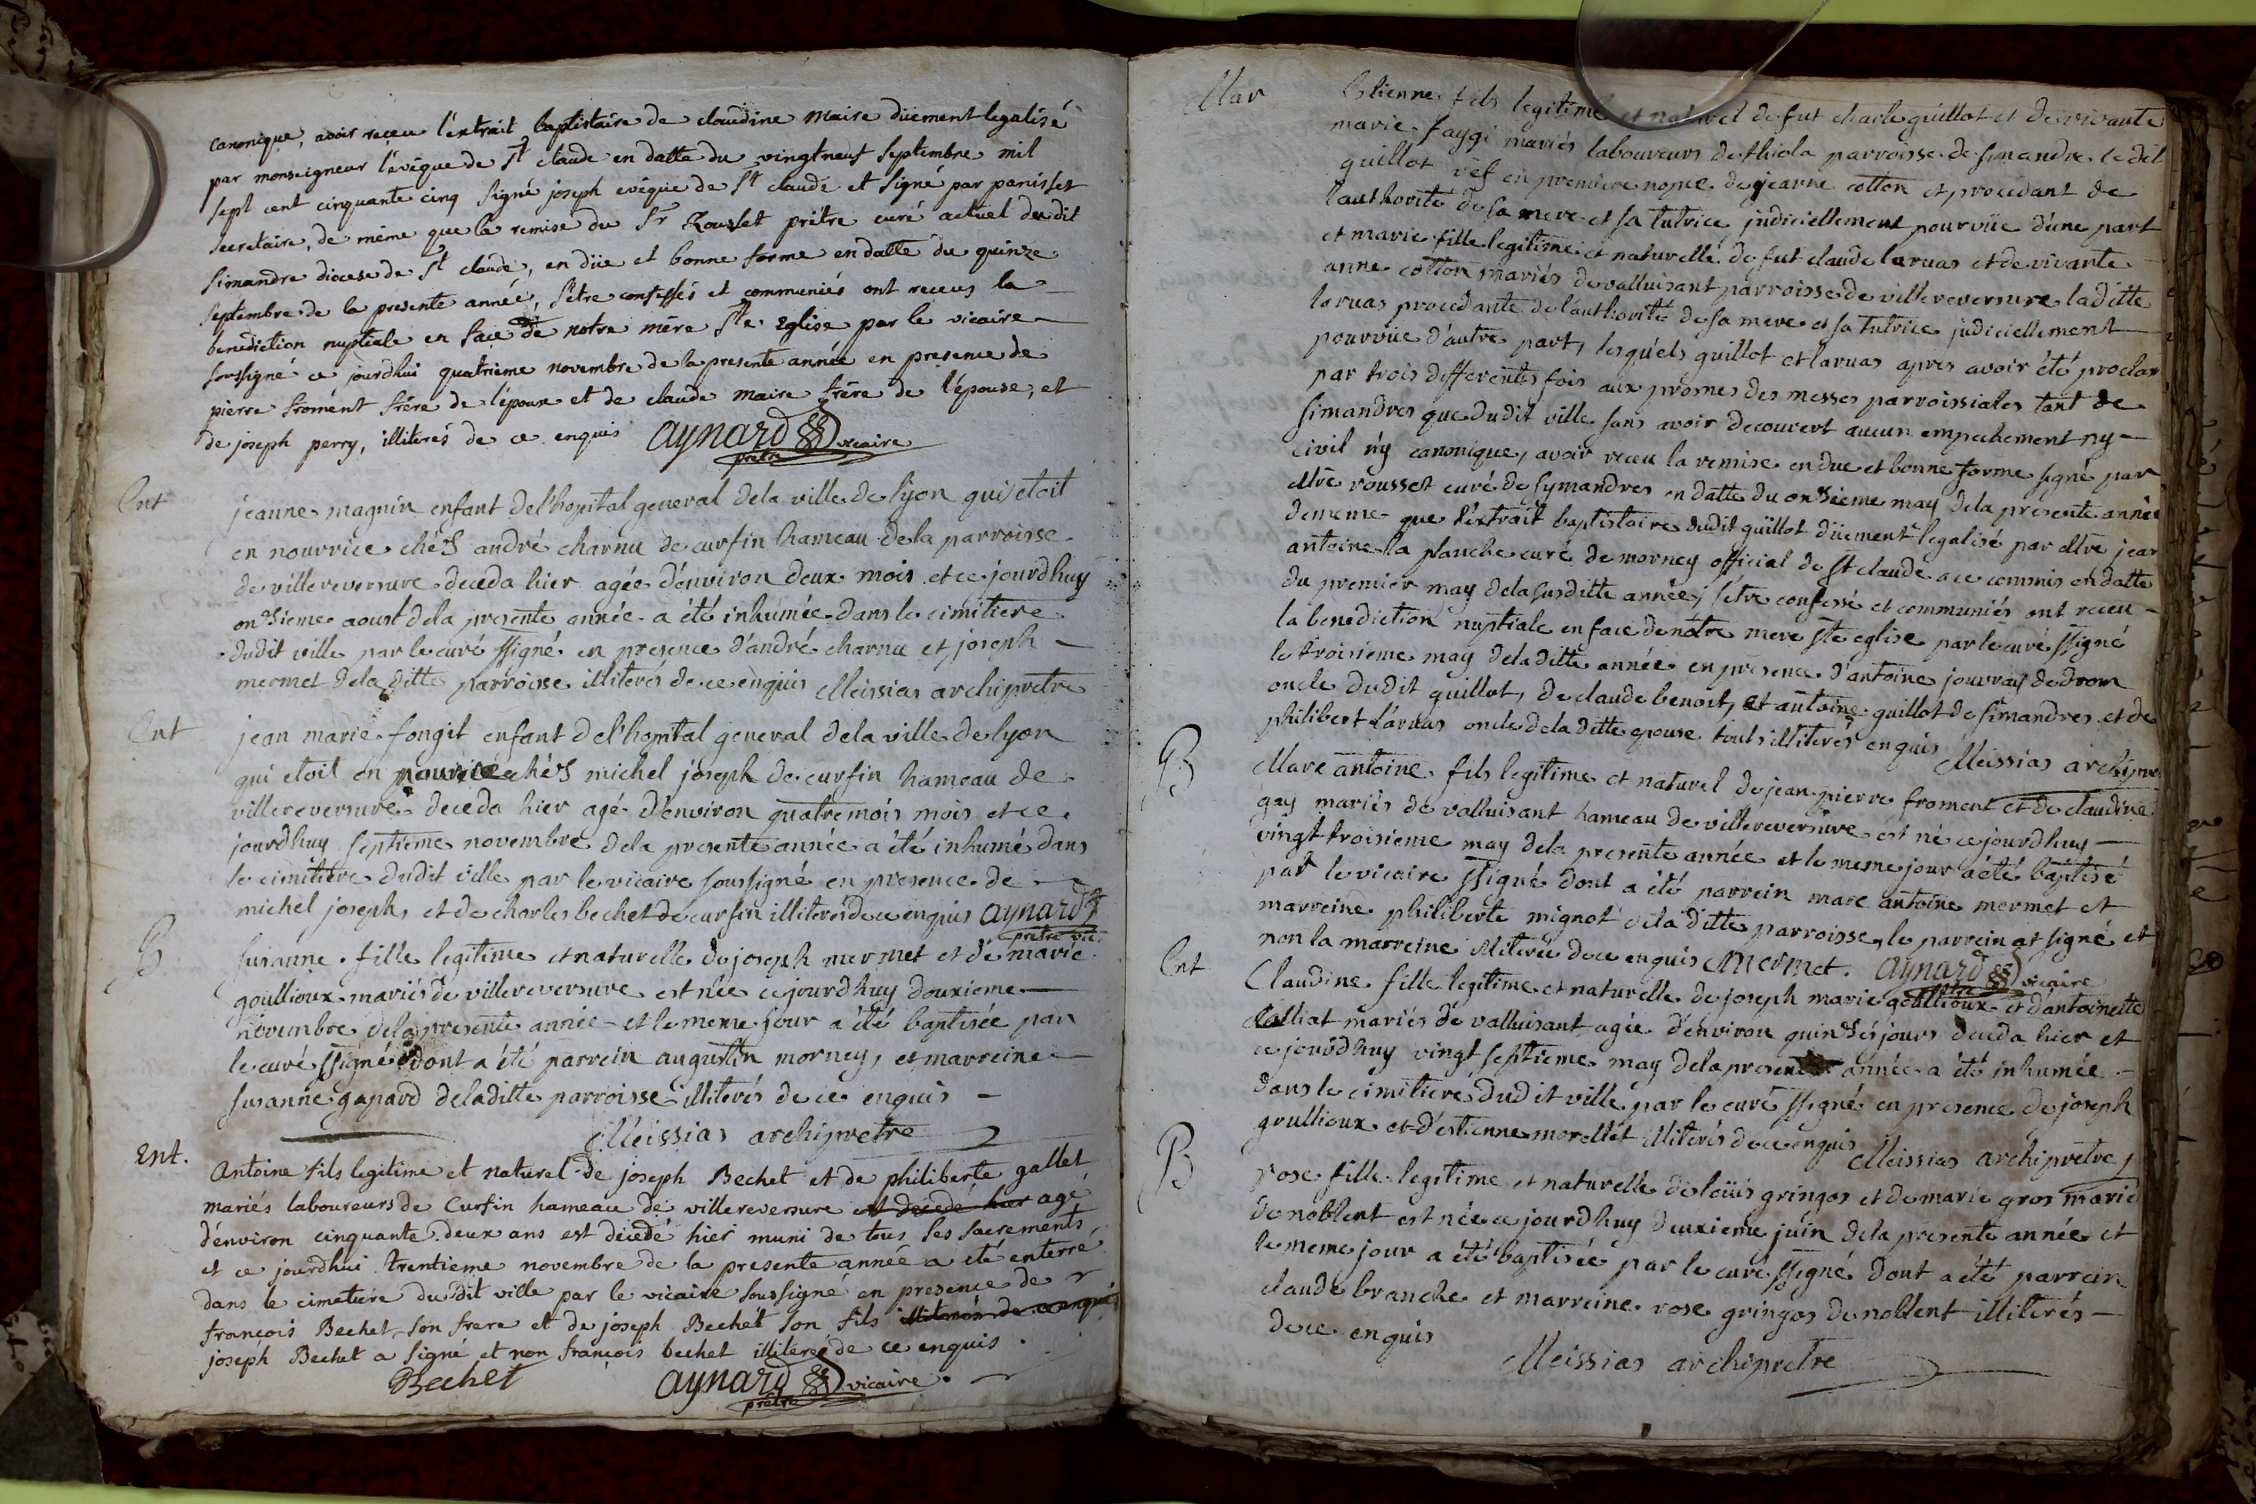 canonique, avoir reçeu l'extrait baptistaire de claudine maire düement legalisé
par monseigneur l'évêque de St claude en datte du vingtneuf septembre mil
sept cent cinquante cinq signé joseph evêque de St claude et signé par panisset
secretaire, de même que la remise du Sr Rousset prêtre curé actuel du dit
simandre diocese de St claude, en düe et bonne forme en datte du quinze
septembre de la presente année, s'être confessés et communiés ont receus la
benediction nuptiale en face de notre mère Ste Eglise par le vicaire
soussigné ce jourdhui quatrieme novembre de la presente année en presence de
pierre froment frére de l'époux et de claude maire frére de l'épouse, et
de joseph perry, illiterés de ce enquis aynard pretre vicaire
Ent
jeanne magnin enfant de l'hopital general dela ville de lyon qui etoit
en nourrice chés andré charnu de curfin hameau dela parroisse
de villereversure deceda hier agée d'environ deux mois et ce jourdhuy
onsieme aoust dela presente année a été inhumée dans le cimitiere
dudit ville par le curé ssigné en presence d'andré charnu et joseph
mermet dela ditte parroisse illiterés de ce enquis Meissias archipretre
Ent
jean marie fongit enfant de l'hopital general dela ville de lyon
qui etoit en nourrice chés michel joseph de curfin hameau de
villereversure deceda hier agé d'environ quatre mois mois et ce
jourdhuy septieme novembre dela presente année a été inhumé dans
le cimitiere dudit ville par le vicaire soussigné en presence de
michel joseph, et de charles bechet de curfin illiterés de ce enquis aynard
prêtre vic.
B
susanne fille legitime et naturelle de joseph mermet et de marie
goullioux mariés de villereversure est née ce jourdhuy douxieme
novembre dela presente année et le meme jour a été baptisée par
le curé ssigné dont a été parrein augustin morney, et marreine
susanne gapard deladitte parroisse illiterés de ce enquis
Meissias archipretre
Ent.
Antoine fils legitime et naturel de joseph Bechet et de philiberte gallet
mariés laboureurs de Curfin hameau de villereversure est decedé hier agé
d'environ cinquante deux ans est décédé hier muni de tous ses sacrements,
et ce jourdhui trentieme novembre de la presente année a été enterré
dans le cimetiere du dit ville par le vicaire soussigné en presence de
françois Bechet son frere et de joseph Bechet son fils illiterés de ce enquis
joseph Bechet a signé et non françois bechet illiteré de ce enquis.
Bechet aynard prêtre vicaire.
Mar
Etienne fils legitime et naturel de fut charle guillot et de vivante
marie faygi mariés laboureurs de thiola parroisse de simandre le dit
guillot vëf en premiere nopce de jeanne cotton et procedant de
l'authorité de sa mere et sa tutrice judiciellement pourvüe d'une part
et marie fille legitime et naturelle de fut claude laruas et de vivante
anne cotton mariés de valluisant parroisse de villereversure laditte
laruas procedante de l'authorité de sa mere et sa tutrice judiciellement
pourvüe d'autre part, lesquels guillot et laruas apres avoir été proclam
par trois differentes fois aux prosnes des messes parroissiales tant de
simandres que dudit ville sans avoir decouvert aucun empechement ny
civil n'y canonique, avoir receu la remise en due et bonne forme signé par
Mre rousset curé de symandres en datte du onsieme may dela presente année
dememe que l'extrait baptistaire dudit guillot düement legalisé par Mre jean
antoine la planche curé de morney official de St claude a ce commis en datte
du premier may dela susditte année, s'etre confessé et communiés ont receu
la benediction nuptiale en face de nôtre mere Ste eglise par le curé ssigné
le troisieme may dela ditte année en presence d'antoine jouvray de drom
oncle dudit guillot, de claude benoit, et antoine guillot de simandres et de
philibert laruas oncle dela ditte epouse touts illiterés enquis Meissias archipre
B
Marc antoine fils legitime et naturel de jean pierre froment et de claudine
gay mariés de valluisant hameau de villereversure est né ce jourdhuy
vingt troisieme may dela presente année et le meme jour a été baptisé
par le vicaire ssigné dont a été parrein marc antoine mermet et
marreine philiberte mignot dela ditte parroisse, le parrein at signé et
non la marreine illiterée de ce enquis Mermet. aynard ptre vicaire
Ent
Claudine fille legitime et naturelle de joseph marie goullioux et d'antoinette
calliat mariés de valluisant agée d'environ quinsés jours deceda hier et
ce jourdhuy vingt septieme may dela presente année a été inhumée
dans le cimitiere dudit ville par le curé ssigné en presence de joseph
goullioux et d'estienne morellet illiterés de ce enquis Meissias archipretre
B
rose fille legitime et naturelle de loüis gringos et de marie gros marié
de noblent est née ce jourdhuy deuxieme juin dela presente année et
le meme jour a été baptisée par le curé ssigné dont a été parrein
claude branche et marreine rose gringos de noblent illiterés
de ce enquis
Meissias archipretre